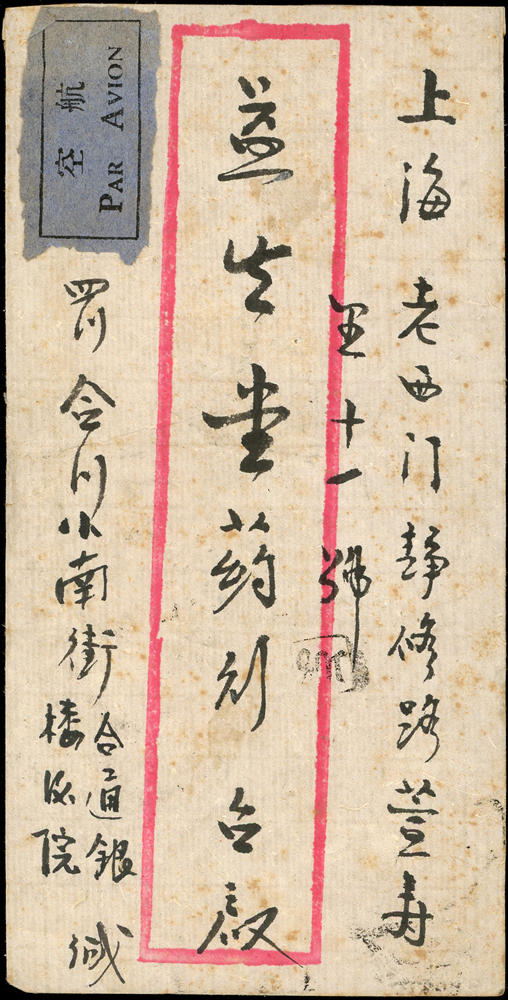 上海老西门静修路萱寿
里十一號
益生堂药剂台啟
航空
PAR AVION
四川合川小南街
合通銀
楼
院
缄